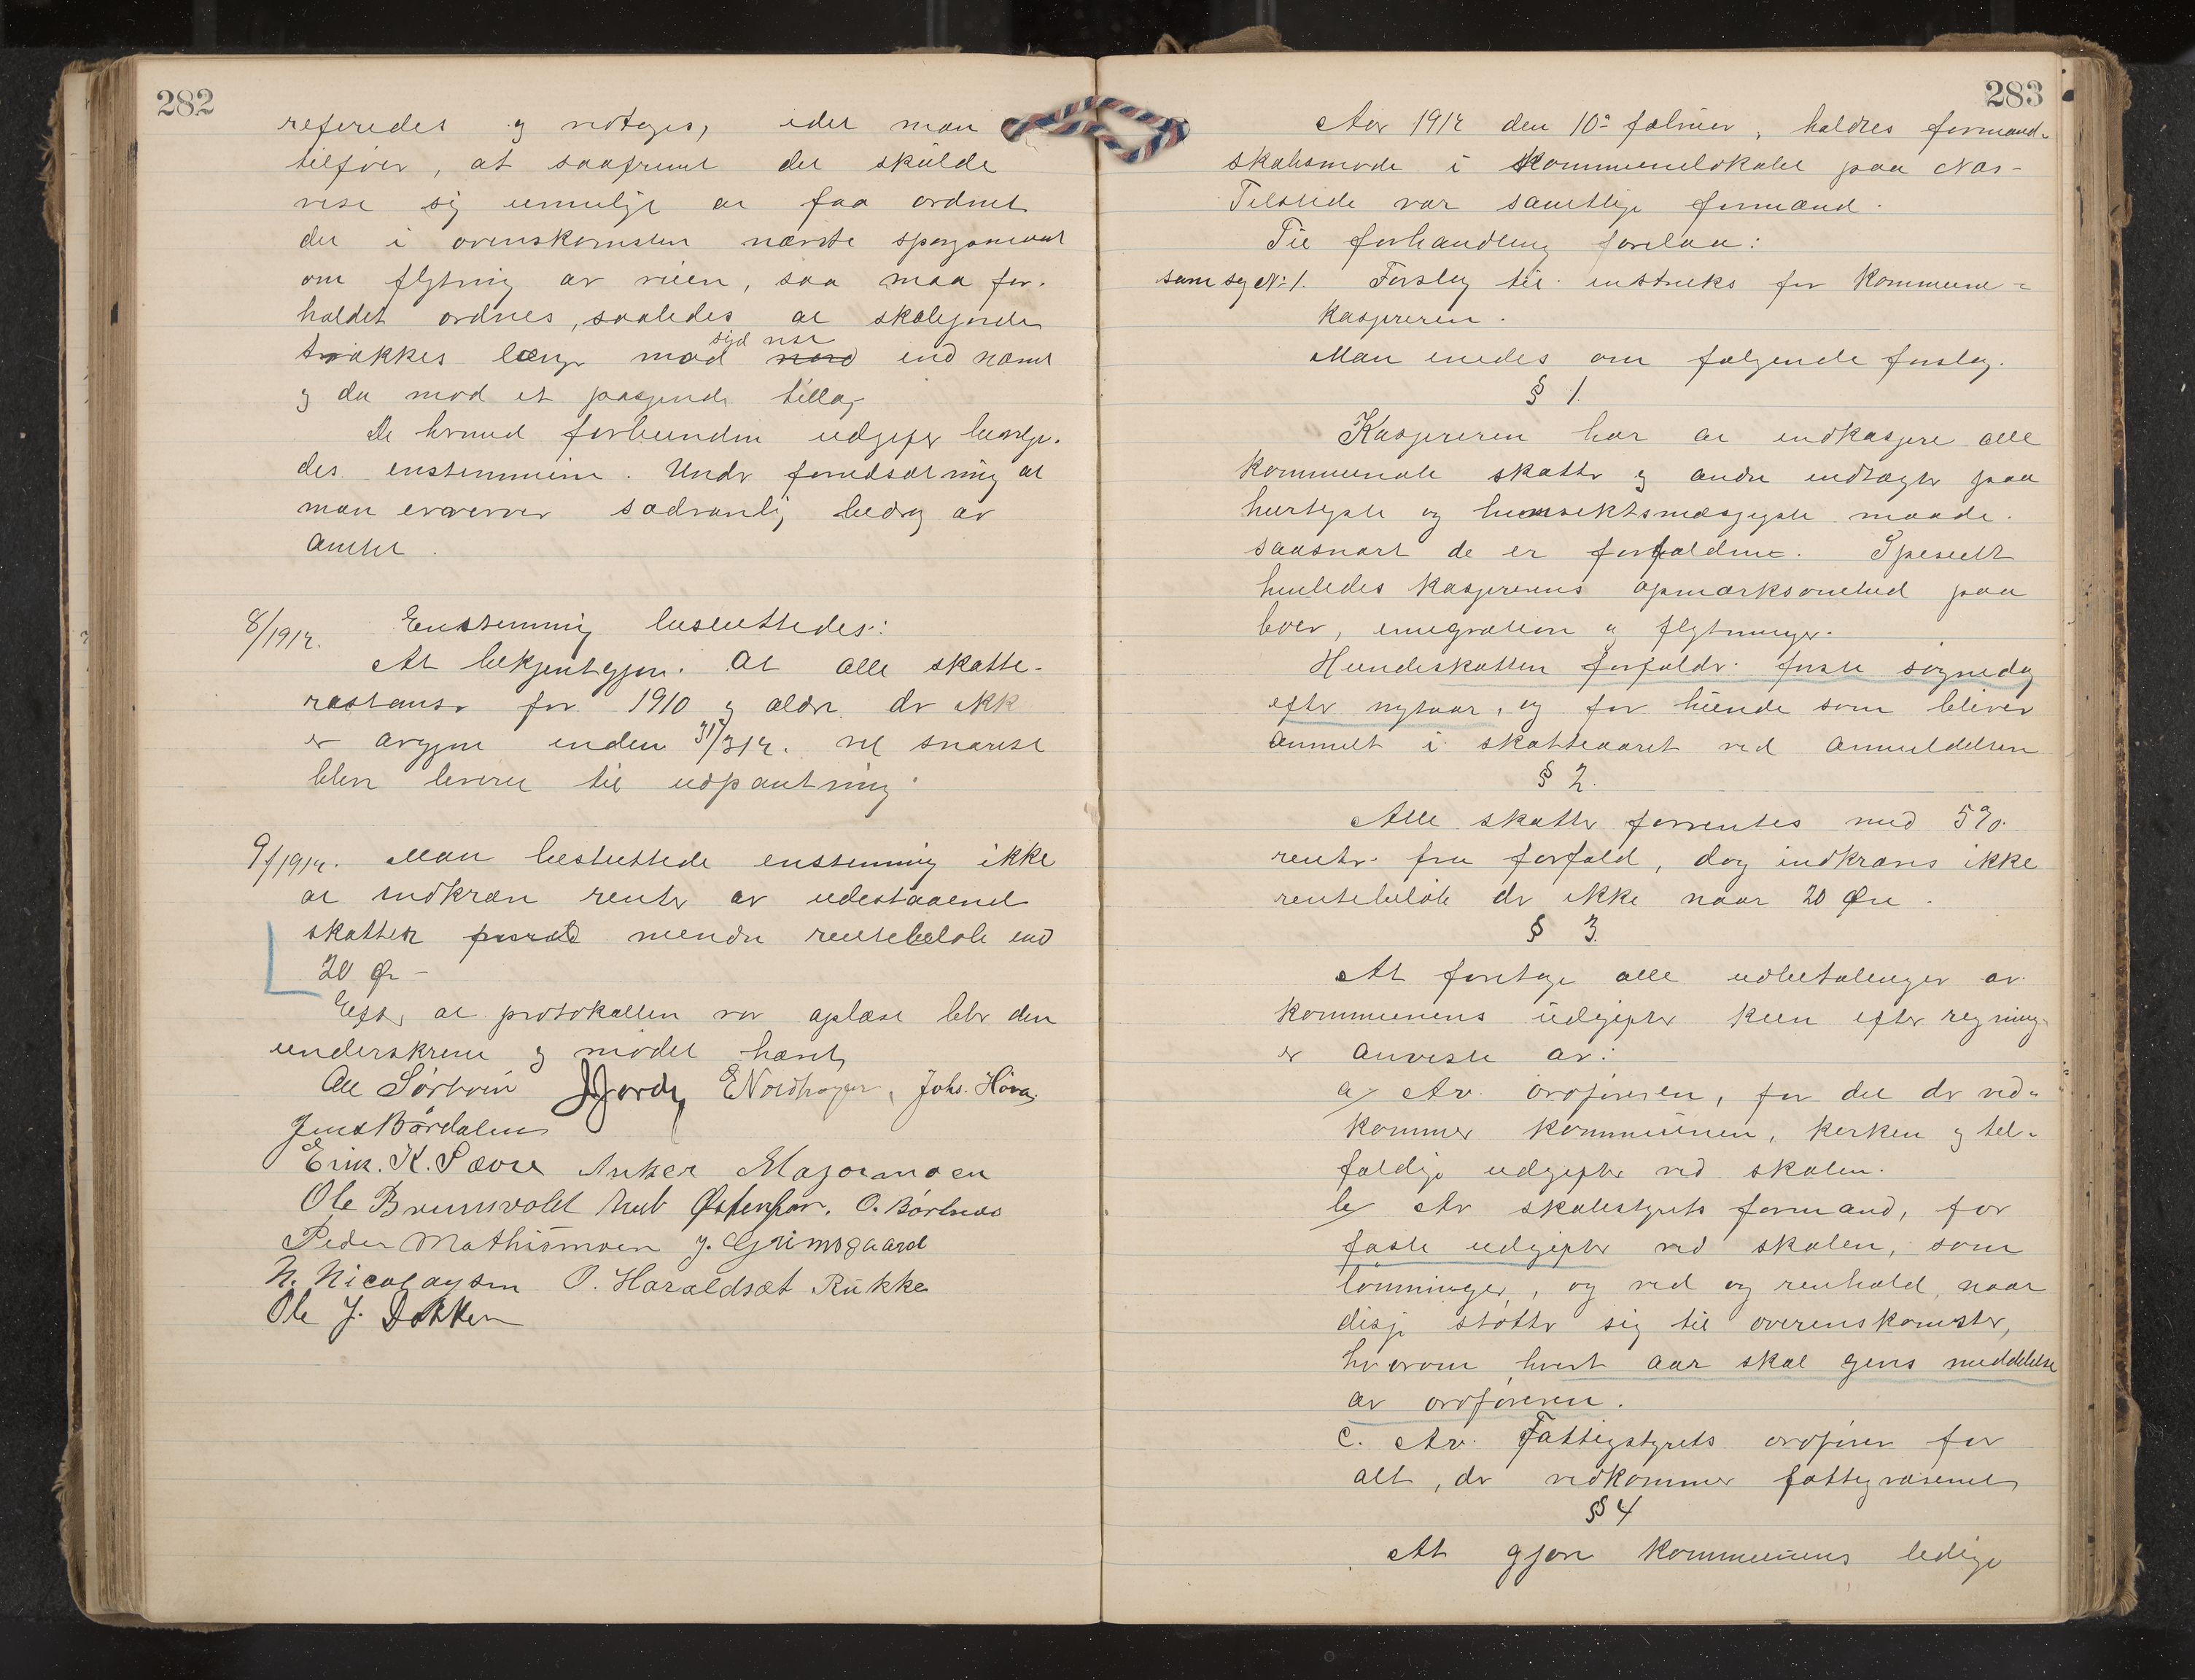 282
referedes og vedtoges, idet man
tilføier, at saafremt det skulde
vise sig umulig at faa ordnet
det i overenskomsten nævnte spørgsmaal
om flytning av veien, saa maa for-
holdet ordnes, saaledes at skolejorden
syd vest
trækkes længer mod nord end nævnt
og da mod et passende tillæg
De hermed forbundne udgifter bevilge-
des enstemmig. Under forudsætning at
man erverver sædvanlig bidrag av
amtet.
8/1912. Enstemmig besluttedes:
At bekjentgjøre. At alle skatte-
restanser for 1910 og ældre der ikke
er avgjort inden 31/3 12. vil snarest
blive leveret til udpantning.
9/1912. Man besluttede enstemmig ikke
at indkræve renter av udestaaende
skatter mindre rentebeløb end
20 Øre -
Efter at protokollen var oplæst blev den
underskreven og mødet hævet
Ole Sørbøen E Nordhagen, Johs. Hove
Jens Børdalen
Erik. K. Sævre Anker Majormoen
Ole Brunsvold O. Børtnes
Peder Mathismoen J. Grimsgaard
N. Nicolaysen O. Haraldset Rukke
Ole J. Dokken
283
Aar 1912 den 10de februar, holdtes formand-
skabsmøde i Kommunelokalet paa Næs-
Tilstede var samtlige formænd.
Til forhandling forelaa:
sam sag No 1. Forslag til instruks for Kommune-
kassereren.
Man enedes om følgende forslag.
§ 1.
Kassereren har at indkassere alle
kommunale skatter og andre indtægter paa
hurtigste og hensiktsmæssigste maade.
saasnart de er forfaldne. Specielt
henledes kassererens opmærksomhed paa
boer, emigration og flytninger.
Hundeskatten forfalder første søgnedag
efter nytaar, og for hunde som bliver
anmeldt i skatteaaret ved anmeldelsen
§ 2.
Alle skatter forrentes med 5%
rente fra forfald, dog indkræves ikke
rentebeløb der ikke naar 20 Øre.
§ 3
At foretage alle udbetalinger av
kommunens udgifter kun efter regning
er anviste av:
a/ Av ordføreren, for det der ved-
kommer kommunen, kirken og til-
fældige udgifter ved skolen.
b/ Av skolestyrets formand, for
faste udgifter ved skolen, som
lønninger, og ved og renhold, naar
disse støtter sig til overenskomster,
hvorom hvert aar skal gives meddelelse
av ordføreren.
c. Av Fattigstyrets ordfører for
alt, der vedkommer fattigvæsenet
§ 4
At gjøre kommunens ledige